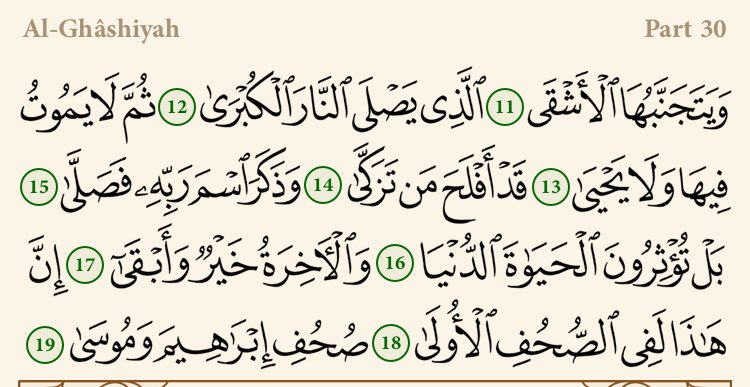 Al-Ghâshiyah Part 30
وَيَتَجَنَّبُهَا ٱلۡأَشۡقَى 11 ٱلَّذِي يَصۡلَى ٱلنَّارَ ٱلۡكُبۡرَىٰ 12 ثُمَّ لَا يَمُوتُ
فِيهَا وَلَا يَحۡيَىٰ 13 قَدۡ أَفۡلَحَ مَن تَزَكَّىٰ 14 وَذَكَرَ ٱسۡمَ رَبِّهِۦ فَصَلَّىٰ 15
بَلۡ تُؤۡثِرُونَ ٱلۡحَيَوٰةَ ٱلدُّنۡيَا 16 وَٱلۡأٓخِرَةُ خَيۡرٞ وَأَبۡقَىٰٓ 17 إِنَّ
هَٰذَا لَفِي ٱلصُّحُفِ ٱلۡأُولَىٰ 18 صُحُفِ إِبۡرَٰهِيمَ وَمُوسَىٰ 19